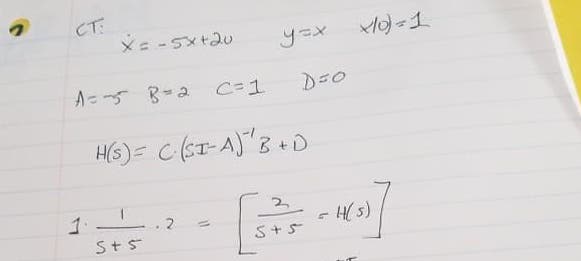 CT:
ẋ = -5x+2u   y=x   x(0)=1
A=-5  B=2  C=1  D=0
H(s)= C·(SI-A)⁻¹B+D
1· 1/(s+5) ·2 = [2/(s+5) = H(s)]